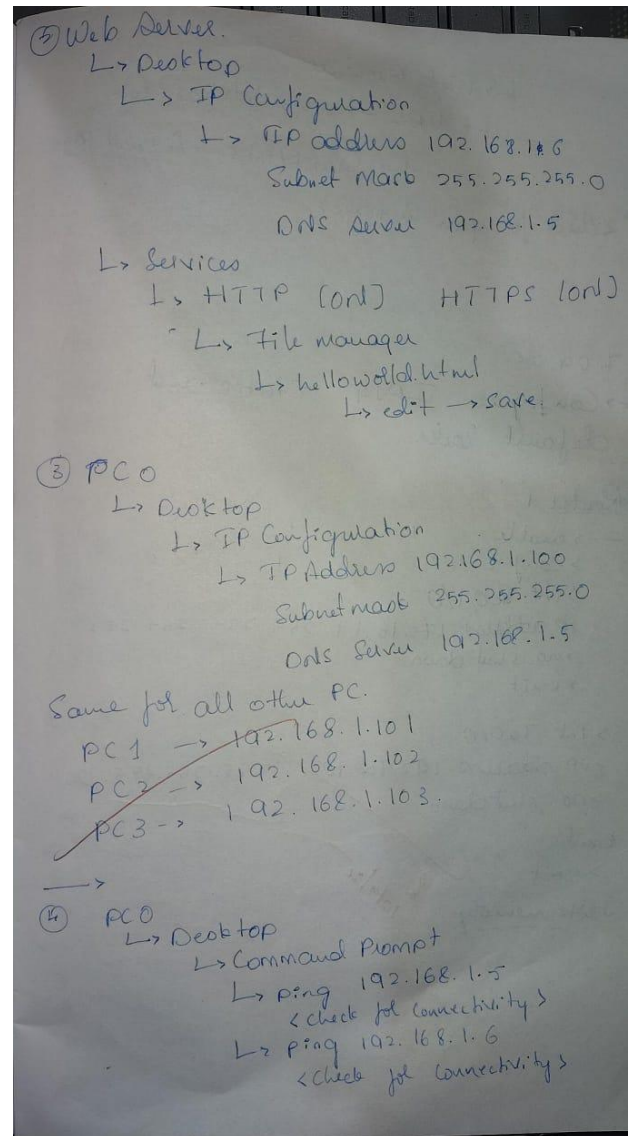 ⑤ Web Server.
↳ Desktop
↳ IP Configuration
↳ IP address 192.168.1.6
Subnet Mask 255.255.255.0
DNS Server 192.168.1.5
↳ Services
↳ HTTP [on] HTTPS [on]
↳ File manager
↳ helloworld.html
↳ edit → save.
③ PC0
↳ Desktop
↳ IP Configuration
↳ IP Address 192.168.1.100
Subnet mask 255.255.255.0
DNS Server 192.168.1.5
Same for all other PC.
PC1 → 192.168.1.101
PC2 → 192.168.1.102
PC3 → 192.168.1.103.
→
④ PC0
↳ Desktop
↳ Command Prompt
↳ ping 192.168.1.5
<check for connectivity>
↳ ping 192.168.1.6
<check for connectivity>